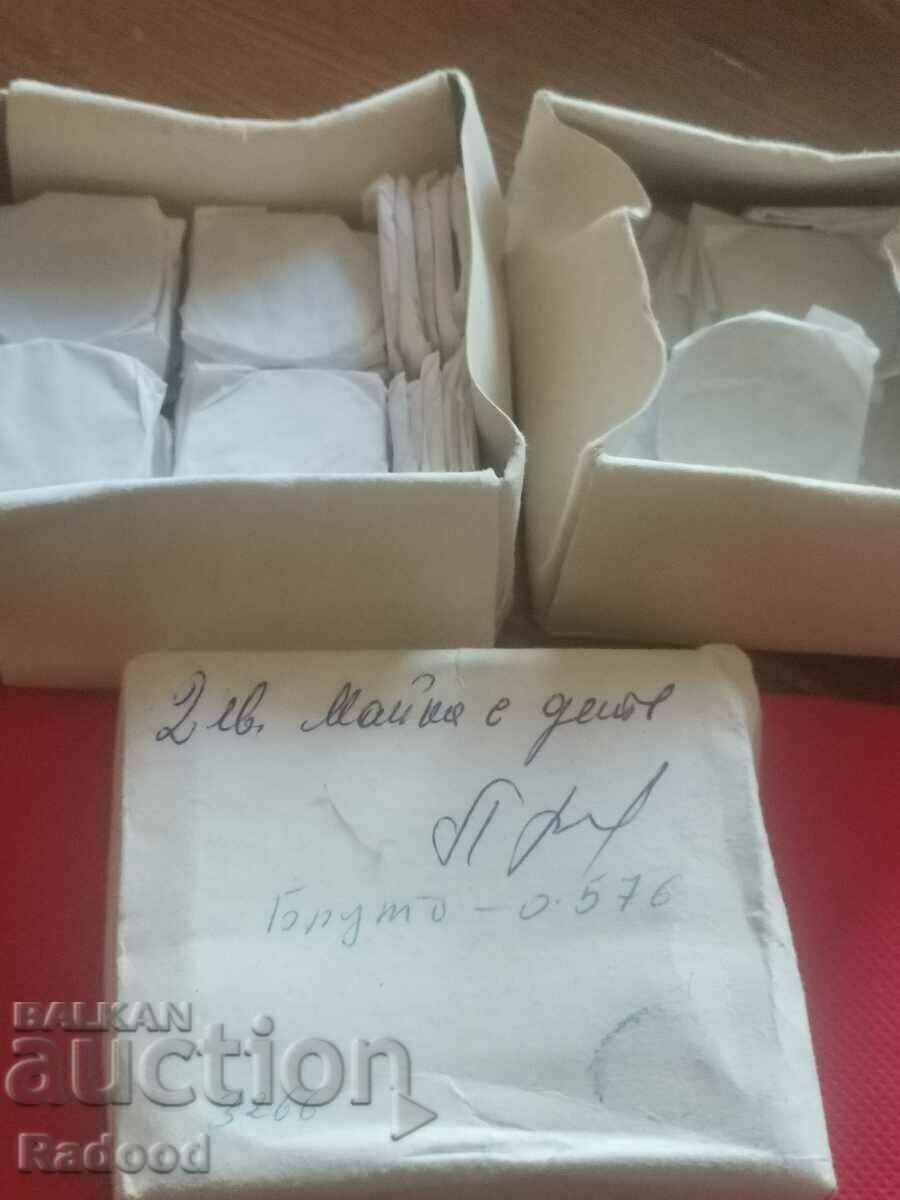 2 лв. Майка с дете
Бруто - 0.576
3266
BALKAN
auction
Radood